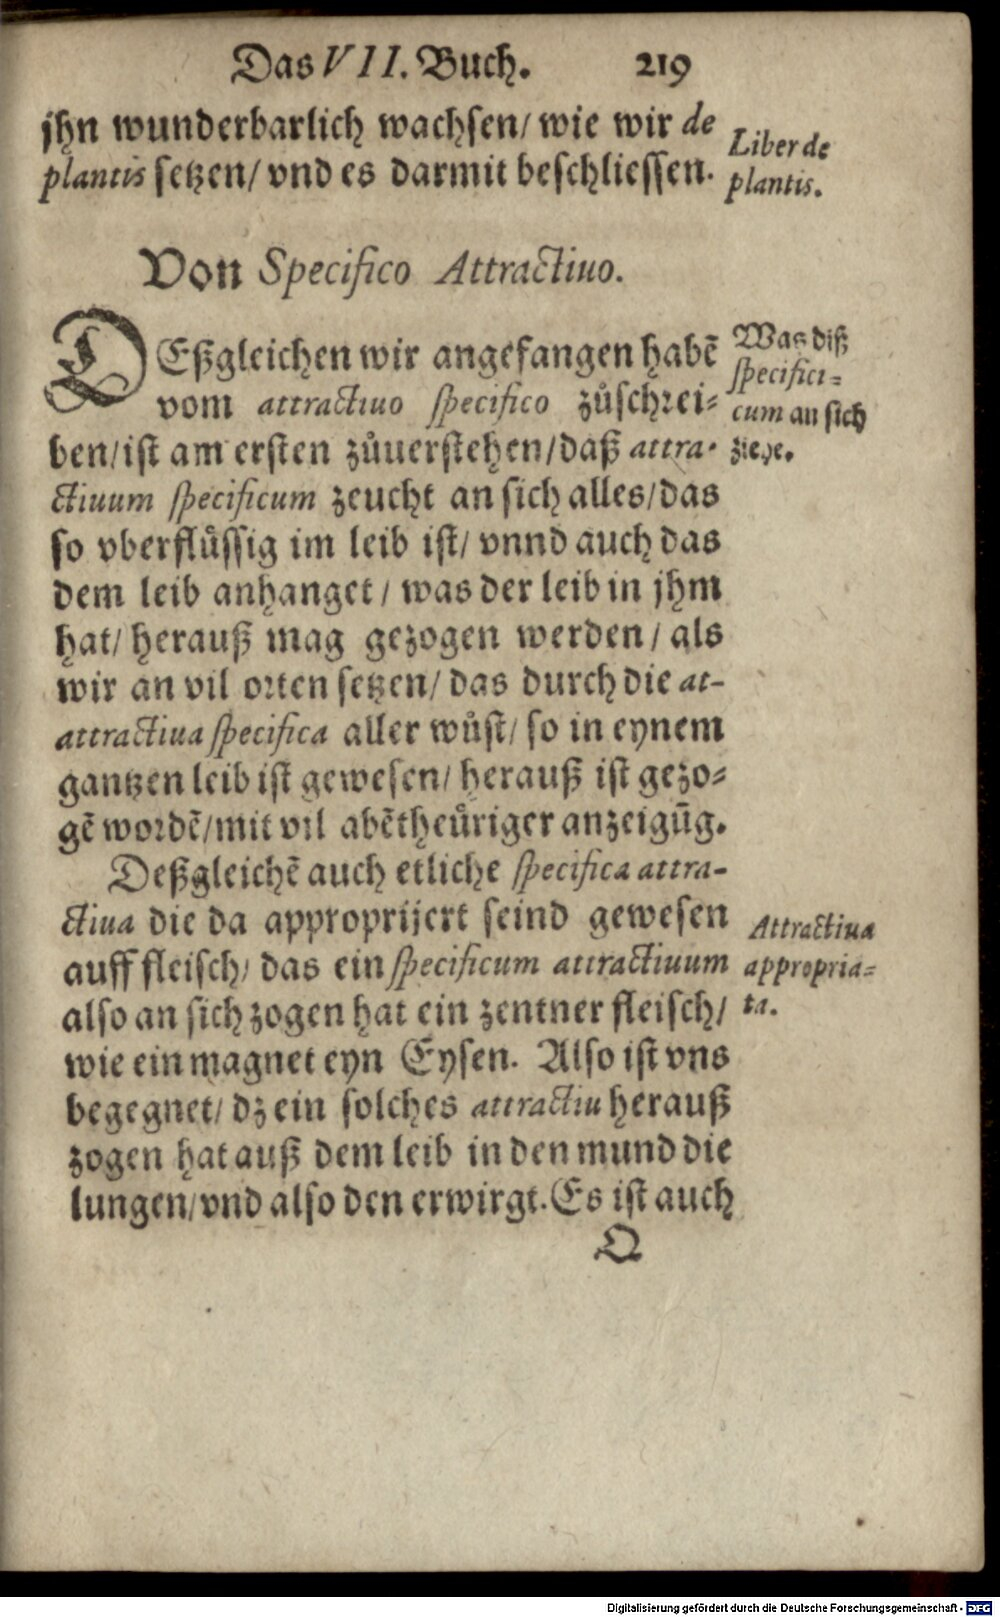 Das VII. Buch. 219
jhn wunderbarlich wachsen/ wie wir de
plantis setzen/ vnd es darmit beschliessen.
Liber de
plantis.
Von Specifico Attractiuo.
DEßgleichen wir angefangen habẽ
vom attractiuo specifico zůschrei⸗
ben/ ist am ersten zůuerstehen/ daß attra-
ctiuum specificum zeucht an sich alles/ das
so vberflüssig im leib ist/ vnnd auch das
dem leib anhanget/ was der leib in jhm
hat/ herauß mag gezogen werden/ als
wir an vil orten setzen/ das durch die at-
attractiua specifica aller wůst/ so in eynem
gantzen leib ist gewesen/ herauß ist gezo⸗
gẽ wordẽ/ mit vil abẽtheüriger anzeigũg.
Was diß
specifici⸗
cum an sich
ziehe.
Deßgleichẽ auch etliche specifica attra-
ctiua die da approprijert seind gewesen
auff fleisch/ das ein specificum attractiuum
also an sich zogen hat ein zentner fleisch/
wie ein magnet eyn Eysen. Also ist vns
begegnet/ dz ein solches attractiu herauß
zogen hat auß dem leib in den mund die
lungen/ vnd also den erwirgt. Es ist auch
Attractiua
appropria⸗
ta.
Q
Digitalisierung gefördert durch die Deutsche Forschungsgemeinschaft - DFG